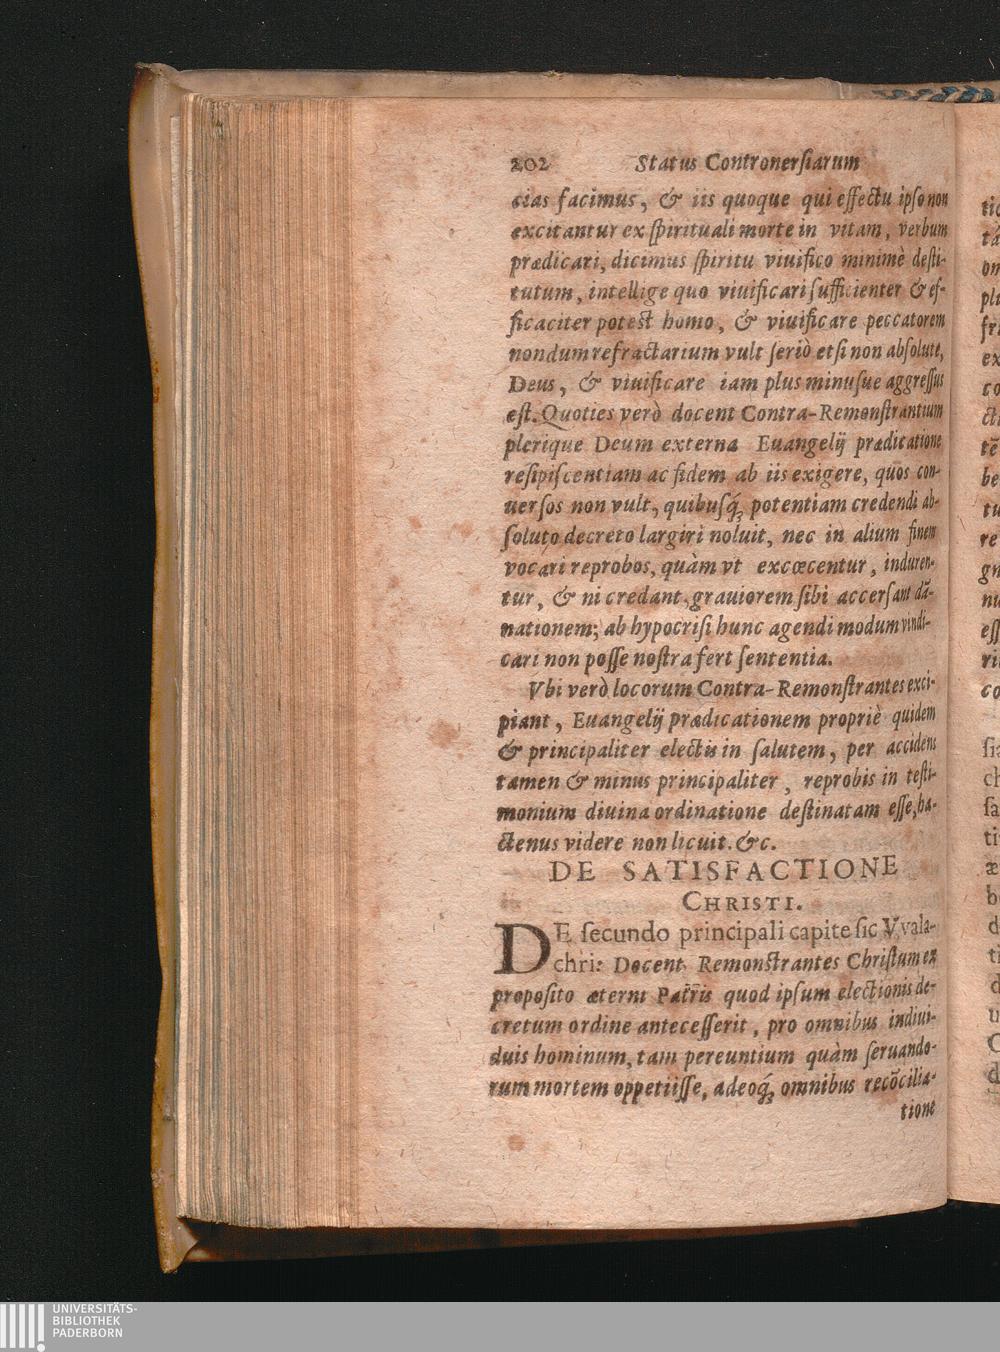 202 Status Controuersiarum
cias facimus, & iis quoque qui effectu ipso non
excitantur ex spirituali morte in vitam, verbum
prædicari, dicimus spiritu viuifico minimè desti-
tutum, intellige quo viuificari sufficienter & ef-
ficaciter potest homo, & viuificare peccatorem
nondum refractarium vult seriò etsi non absolutè,
Deus, & viuificare iam plus minusue aggressus
est. Quoties verò docent Contra-Remonstrantium
plerique Deum externa Euangelij prædicatione
resipiscentiam ac fidem ab iis exigere, quos con-
uersos non vult, quibusq́; potentiam credendi ab-
soluto decreto largiri noluit, nec in alium finem
vocari reprobos, quàm vt excœcentur, induren-
tur, & ni credant, grauiorem sibi accersant dā-
nationem; ab hypocrisi hunc agendi modum vindi-
cari non posse nostra fert sententia.
Vbi verò locorum Contra-Remonstrantes exci-
piant, Euangelij prædicationem propriè quidem
& principaliter electis in salutem, per accidens
tamen & minus principaliter, reprobis in testi-
monium diuina ordinatione destinatam esse, ha-
ctenus videre non licuit. &c.
DE SATISFACTIONE
CHRISTI.
DE secundo principali capite sic VVala-
chri: Docent Remonstrantes Christum ex
proposito æterni Patris quod ipsum electionis de-
cretum ordine antecesserit, pro omnibus indiui-
duis hominum, tam pereuntium quàm seruando-
rum mortem oppetiisse, adeoq́; omnibus recōcilia-
tione
UNIVERSITÄTS-
BIBLIOTHEK
PADERBORN